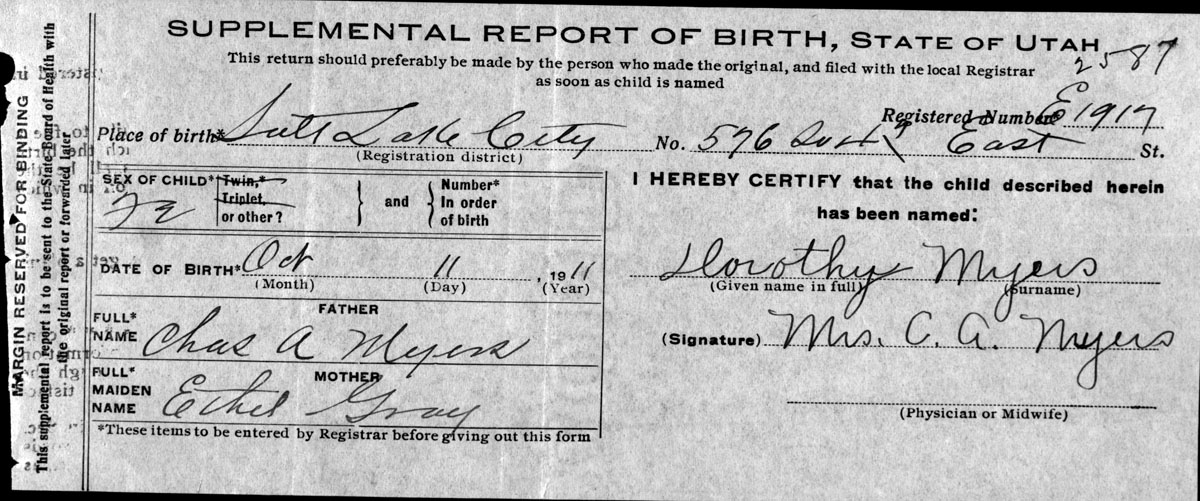 SUPPLEMENTAL REPORT OF BIRTH, STATE OF UTAH
2587
This return should preferably be made by the person who made the original, and filed with the local Registrar
as soon as child is named
Registered Number E 1917
Place of birth* Salt Lake City No. 576 East St.
(Registration district)
SEX OF CHILD* Fe
Twin,*
Triplet,
or other?
and
Number*
In order
of birth
DATE OF BIRTH* Oct 11, 1911
(Month) (Day) (Year)
FATHER
FULL*
NAME Chas A Myers
MOTHER
FULL*
MAIDEN
NAME Ethel Gray
*These items to be entered by Registrar before giving out this form
I HEREBY CERTIFY that the child described herein
has been named:
Dorothy Myers
(Given name in full) (Surname)
(Signature) Mrs. C. A. Myers
(Physician or Midwife)
MARGIN RESERVED FOR BINDING
This supplemental report is to be sent to the State Board of Health with
the original report or forwarded later